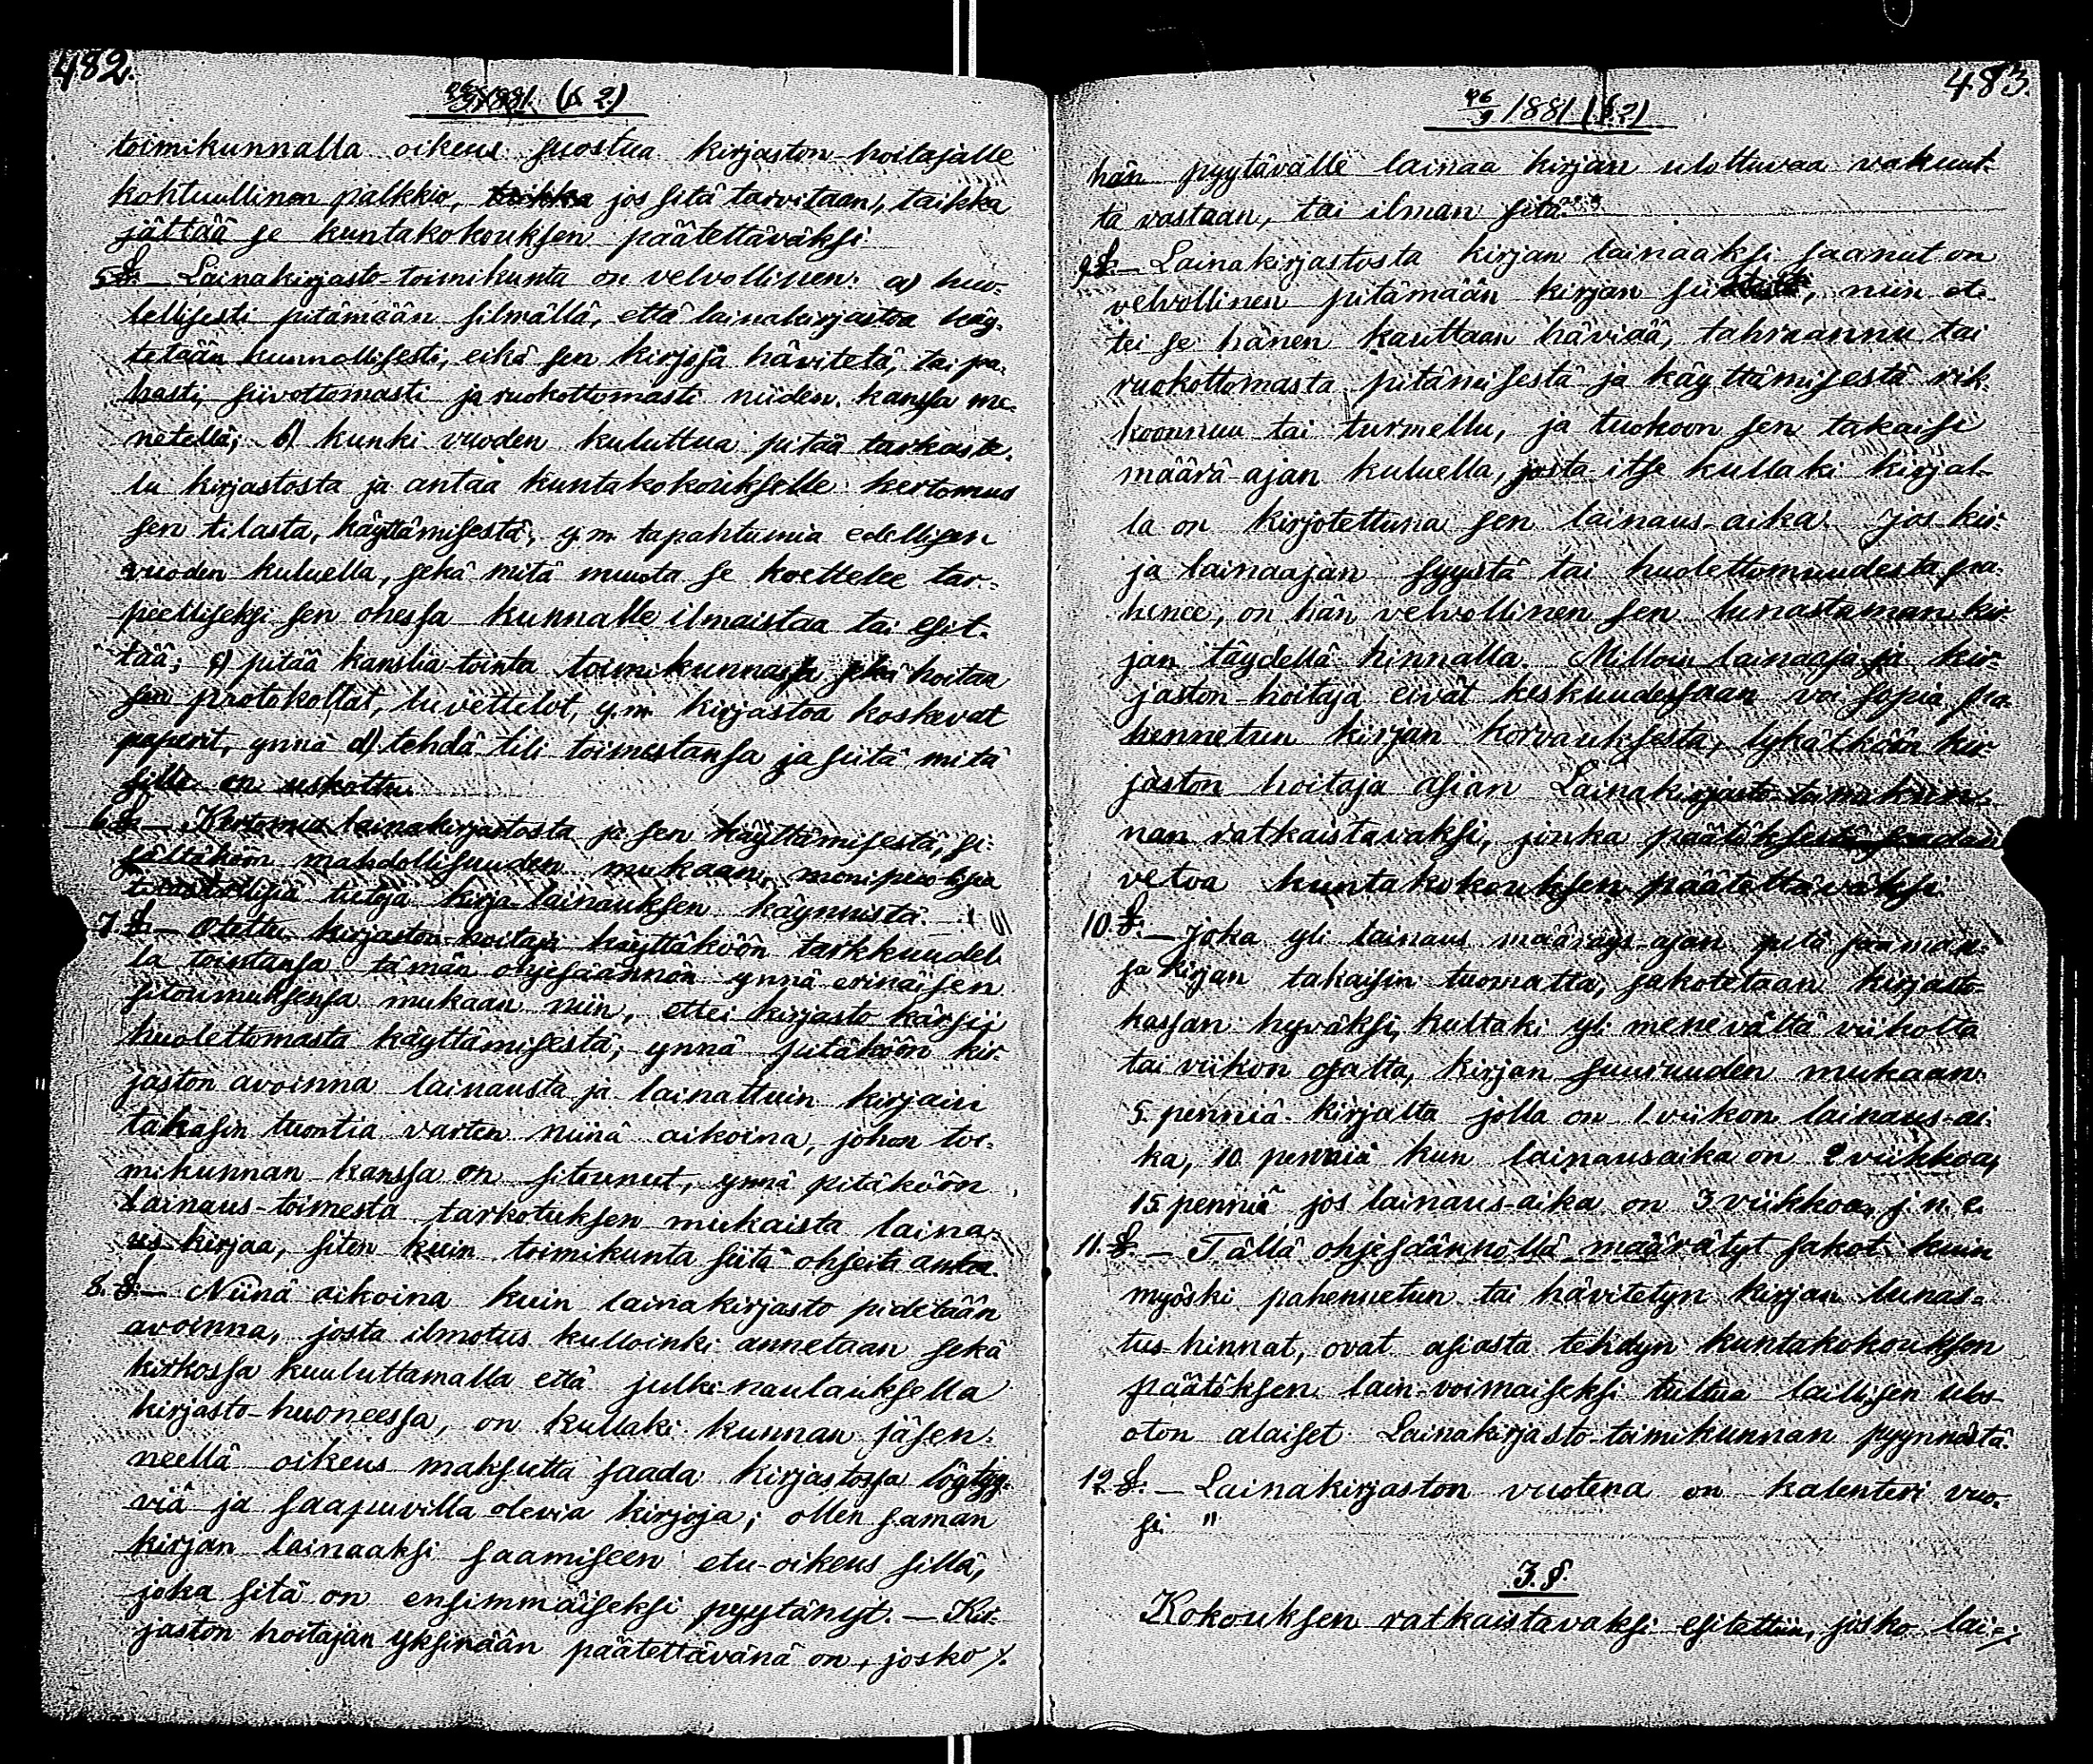 482.
26/9 1881. (§ 2.)
toimikunnalla oikeus suostua kirjaston-hoitajalle
kohtuullinen palkkio, jos sitä tarvitaan, taikka
jättää se kuntakokouksen päätettäväksi.
5.§.— Lainakirjasto-toimikunta on velvollinen: a) huo-
lellisesti pitämään silmällä, että lainakirjastoa käy-
tetään kunnollisesti, eikä sen kirjoja hävitetä, tai pa-
hasti, siivottomasti ja ruokottomasti niiden kanssa me-
netellä; b) kunki vuoden kuluttua pitää tarkaste-
lu kirjastosta ja antaa kuntakokoukselle kertomus
sen tilasta, käyttämisestä, y.m. tapahtumia edellisen
vuoden kuluella, sekä mitä muuta se koettelee tar-
peelliseksi sen ohessa kunnalle ilmaistaa tai esit-
tää; c) pitää kanslia-tointa toimikunnassa sekä hoitaa
sen protokollat, luvettelot, y.m. kirjastoa koskevat
paperit, ynnä d) tehdä tili toimestansa ja siitä mitä
sille on uskottu.
6.§.— Kertomus lainakirjastosta ja sen käyttämisestä, si-
sältäköön mahdollisuuden mukaan, monipuolisia
tietoja kirja-lainauksen käynnistä.
7.§.— Otettu kirjaston-hoitaja käyttäköön tarkkuudel-
la tointansa tämän ohjesäännön ynnä erinäisen
sitoumuksensa mukaan niin, ettei kirjasto kärsii
huolettomasta käyttämisestä; ynnä pitäköön kir-
jaston avoinna lainausta ja lainattuin kirjain
takasin tuontia varten niinä aikoina, johon toi-
mikunnan kanssa on sitounut, ynnä pitäköön
lainaus-toimesta tarkotuksen mukaista laina-
us kirjaa, siten kuin toimikunta siitä ohjeita antaa.
8.§.— Niinä aikoina kuin lainakirjasto pidetään
avoinna, josta ilmotus kulloinki annetaan sekä
kirkossa kuuluttamalla että julki-naulauksella
kirjasto-huoneessa, on kullaki kunnan jäsen-
neellä oikeus maksutta saada kirjastossa löytyy-
viä ja saapuvilla olevia kirjoja; ollen saman
kirjan lainaaksi saamiseen etu-oikeus sillä,
joka sitä on ensimmäiseksi pyytänyt. — Kir-
jaston hoitajan yksinään päätettävänä on, josko ⁒
483.
26/9 1881 (§.2)
hän pyytävälle lainaa kirjan ulottuvaa vakuut-
ta vastaan, tai ilman sitä.
9§.— Lainakirjastosta kirjan lainaaksi saanut on
velvollinen pitämään kirjan , niin et-
tei se hänen kauttaan häviää, tahraannu tai
ruokottomasta pitämisestä ja käyttämisestä rik-
koonnuu tai turmellu, ja tuokoon sen takaisi
määrä-ajan kuluella, josta itse kullaki kirjal-
la on kirjotettuna sen lainaus-aika. Jos kir-
ja lainaajan syystä tai huolettomuudesta pa-
henee, on hän velvollinen sen lunastaman kir-
jan täydellä hinnalla. Milloin lainaaja ja kir-
jaston-hoitaja eivät keskuudessaan voi sopia pa-
hennetun kirjan korvauksesta, lykätköön kir-
jaston hoitaja asian Lainakirjasto-toimikun-
nan ratkaistavaksi, jinka päätöksestä saadaan
vetoa kuntakokouksen päätettäväksi.
10.§.— Joka yli lainaus määräys-ajan pitä saaman-
sa kirjan takaisin tuomatta, sakotetaan kirjasto-
kassan hyväksi, kultaki yli menevältä viikolta
tai viikon osalta, kirjan suuruuden mukaan:
5. penniä kirjalta jolla on 1. viikon lainaus-ai-
ka, 10 penniä kun lainausaika on 2 viikkoa,
15 penniä jos lainaus-aika on 3 viikkoa, j.n.e.
11.§.— Tällä ohjesäännöllä määrätyt sakot kuin
myöski pahennetun tai hävitetyn kirjan lunas-
tus-hinnat, ovat asiasta tehdyn kuntakokouksen
päätöksen lain-voimaiseksi tultua laillisen ulos-
oton alaiset Lainakirjasto-toimikunnan pyynnöstä.
12§.— Lainakirjaston vuotena on kalenteri vuo-
si. "
3.§.
Kokouksen ratkaistavaksi esitettiin, josko lai-⁒